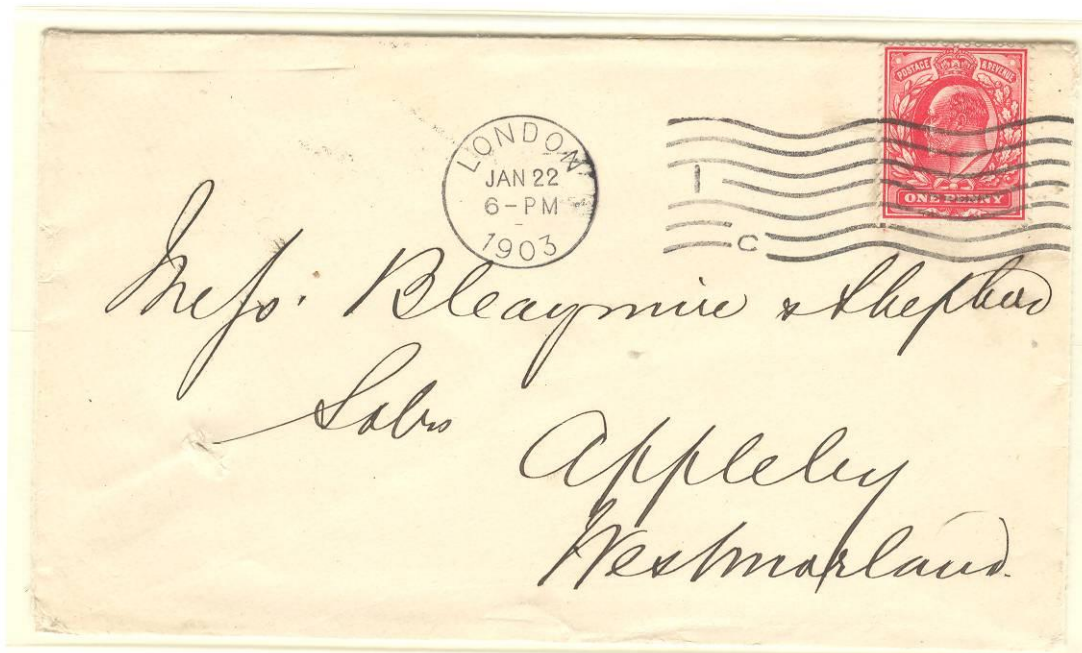 POSTAGE & REVENUE
ONE PENNY
LONDON
JAN 22
6-PM
1903
1
C
Messrs. Bleaymire & Shepherd
Solrs
Appleby
Westmorland.